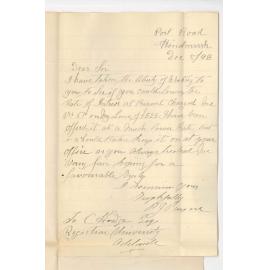 Port Road
Hindmarsh
Dec 5/98
Dear Sir
I have taken the liberty of writing
to you to see if you could lower the
Rate of Interest at Present Charged me
on Loan of £
offered it at a much lower Rate but
I would Rather keep it on at your
office as you always treated me
Very fair hoping for a
favourable Reply
I Remain Yours
Respectfully
To C Hodge Esqr
Registrar University
Adelaide